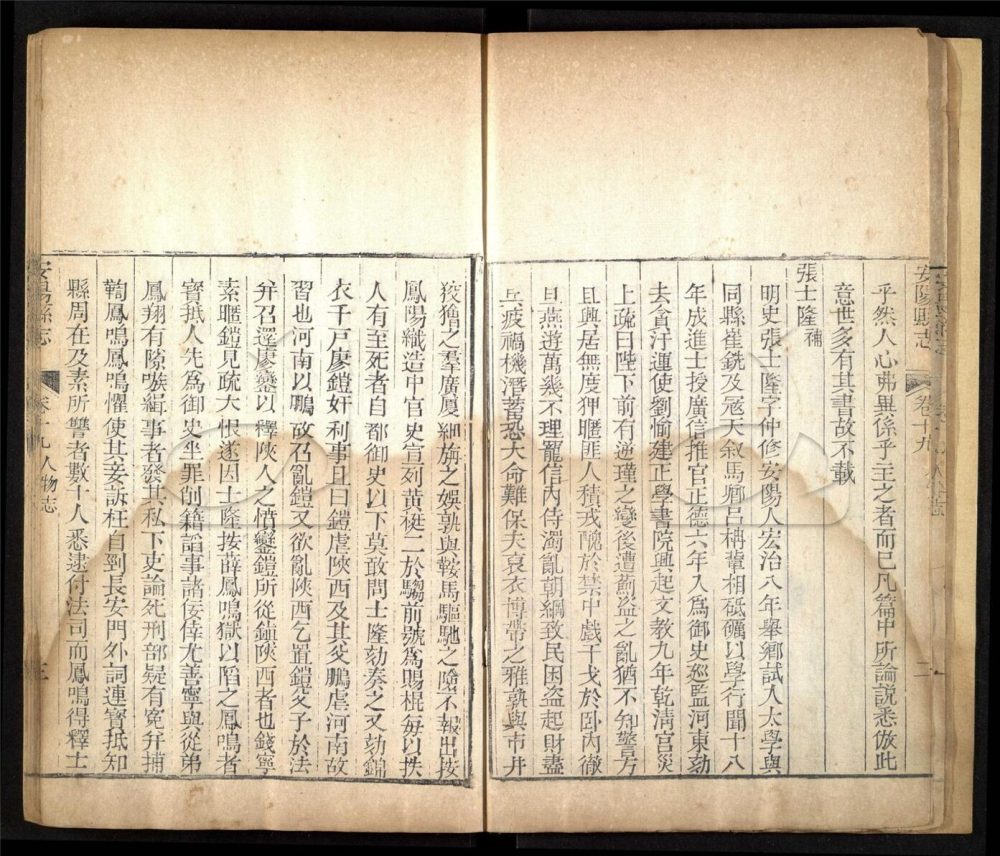 安陽縣志 卷十九
乎然人心弗異係乎主之者而已凡篇中所論說悉倣此
意世多有其書故不載
張士隆補
明史張士隆字仲修安陽人宏治八年舉鄉試入太學與
同縣崔銑及寇天敘馬卿呂柟輩相砥礪以學行聞十八
年成進士授廣信推官正德六年入爲御史巡鹽河東劾
去貪汙運使劉愉建正學書院興起文教九年乾清宮災
上疏曰陛下前有逆瑾之變後遭薊盜之亂猶不知警方
且興居無度狎暱匪人積戎醜於禁中戲干戈於臥內徹
旦燕遊萬幾不理寵信內侍濁亂朝綱致民困盜起財盡
兵疲禍機潛蓄恐大命難保夫裒衣博帶之雅孰與市井
狡獪之羣廣廈細旃之娛孰與鞍馬驅馳之墮不報出按
鳳陽織造中官史宣列黃梃二於騶前號爲賜棍每以抶
人有至死者自都御史以下莫敢問士隆劾奏之又劾錦
衣千戶廖鎧奸利事且曰鎧虐陝西及其父鵬虐河南故
習也河南以鵬故召亂鎧又欲亂陝西乞置鎧父子於法
并召還廖鑾以釋陝人之憤鑾鎧所從鎮陝西者也錢寧
素暱鎧見疏大恨遂因士隆按薛鳳鳴獄以陷之鳳鳴者
寶抵人先爲御史坐罪削籍諂事諸佞倖尤善寧與從弟
鳳翔有隙嗾緝事者發其私下吏論死刑部疑有冤并捕
鞫鳳鳴鳳鳴懼使其妾訴枉自剄長安門外詞連寶抵知
縣周在及素所讐者數十人悉逮付法司而鳳鳴得釋士
安陽縣志 卷十九 人物志 三